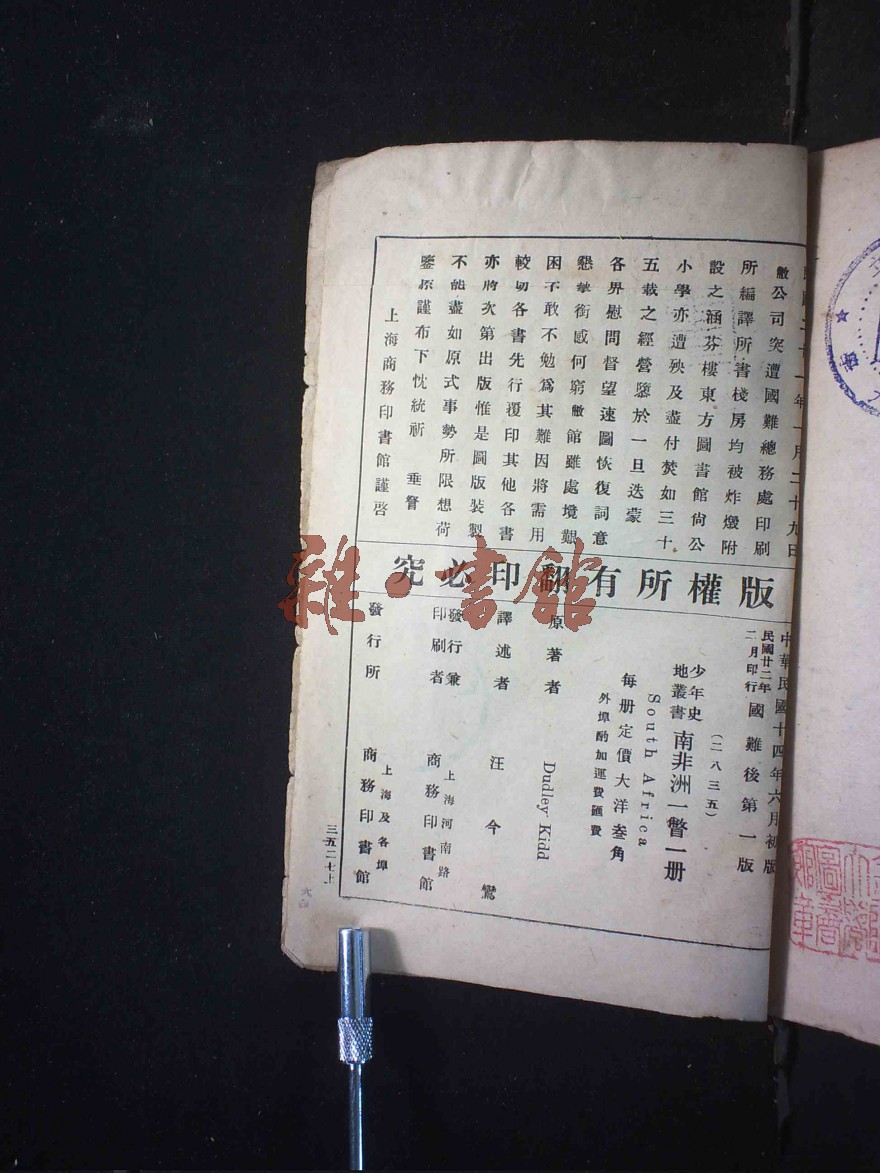 民國二十一年一月二十九日
敝公司突遭國難總務處印刷
所編譯所書棧房均被炸燬附
設之涵芬樓東方圖書館尙公
小學亦遭殃及盡付焚如三十
五載之經營隳於一旦迭蒙
各界慰問督望速圖恢復詞意
懇摯銜感何窮敝館雖處境艱
困不敢不勉爲其難因將需用
較切各書先行覆印其他各書
亦將次第出版惟是圖版裝製
不能盡如原式事勢所限想荷
鑒原謹布下忱統祈 垂詧
上海商務印書館謹啓
版權所有翻印必究
中華民國十四年六月初版
民國廿二年二月印行 國難後第一版
(二八三五)
少年史地叢書 南非洲一瞥一册
South Africa
每册定價大洋叁角
外埠酌加運費匯費
原著者 Dudley Kidd
譯述者 汪今鸞
發行兼印刷者 上海河南路 商務印書館
發行所 上海及各埠 商務印書館
三五二七上
雜·書館